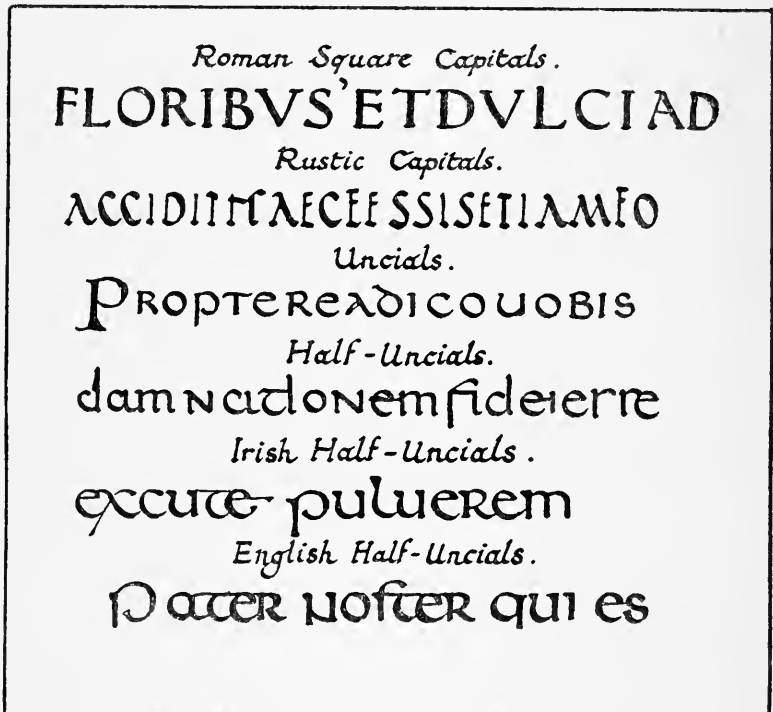 Roman Square Capitals.
FLORIBVS'ETDVLCIAD
Rustic Capitals.
ACCIDITHAECEESSISETIAMFO
Uncials.
PROPTEREADICOUOBIS
Half-Uncials.
damNationemfideierre
Irish Half-Uncials.
excute puluerem
English Half-Uncials.
Pater noster qui es